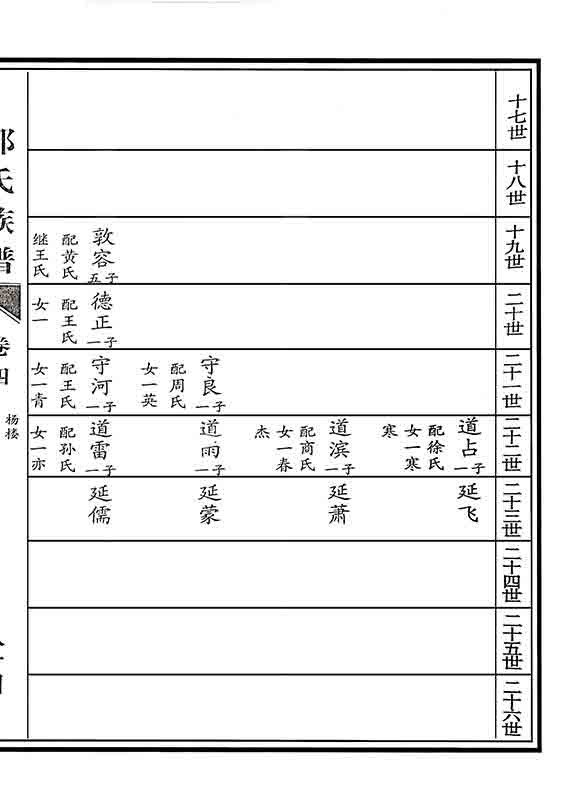 十七世
十八世
十九世
敦容
五子
配黄氏
继王氏
二十世
德正
一子
配王氏
女一
二十一世
守良
一子
配周氏
女一英
守河
一子
配王氏
女一青
二十二世
道占
一子
配徐氏
女一寒
寒
道滨
一子
配商氏
女一春
杰
道雨
一子
道雷
一子
配孙氏
女一亦
二十三世
延飞
延萧
延蒙
延儒
二十四世
二十五世
二十六世
氏族谱
卷四
杨楼